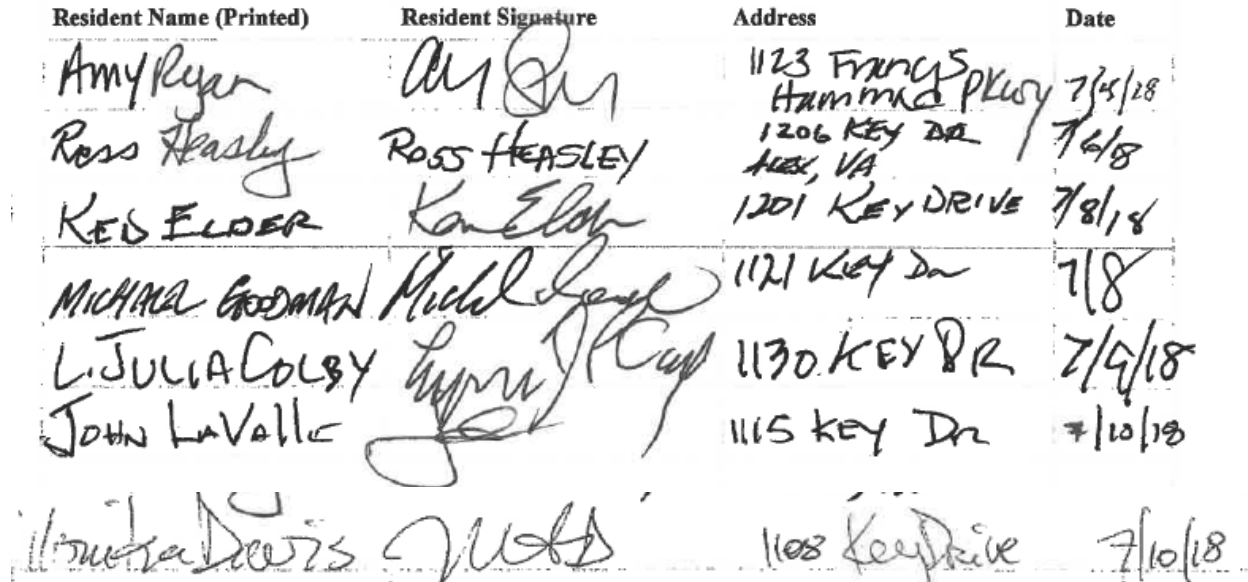 Resident Name (Printed) Resident Signature Address Date
Amy Ryan 1123 Francis
Hammond Pkwy 7/5/18
Ross Heasley ROSS HEASLEY 1206 KEY DR 7/6/18
Alex, VA
KEN ELDER Ken Elder 1201 KEY DRIVE 7/8/18
MICHAEL GOODMAN 1121 KEY Dr 7/8
L. JULIA COLBY 1130 KEY DR 7/9/18
JOHN LAVAllE 1115 KEY Dr 7/10/18
Davis 1108 Key Drive 7/10/18